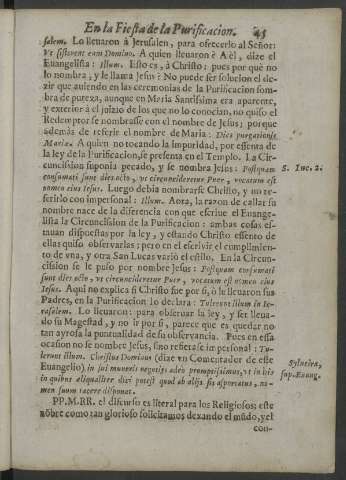 En la Fiesta de la Purificacion. 45
salem. Lo lleuaron à Jerusalen, para ofrecerlo al Señor:
Vt sisterent eum Domino. A quien lleuaron è A èl, dize el
Euangelista: Illum. Esto es, à Christo: pues por què no
lo nombra, y le llama Jesus? No puede ser solucion el de-
zir que auiendo en las ceremonias de la Purificacion som-
bra de pureza, aunque en Maria Santissima era aparente,
y exterior à el juizio de los que no lo conocian, no quiso el
Redemptor se nombrasse con el nombre de Jesus; porque
ademàs de referir el nombre de Maria: Dies purgationis
Mariæ. A quien no tocando la impuridad, por essenta de
la ley de la Purificacion, se presenta en el Templo. La Cir-
cuncission suponia pecado, y se nombra Jesus: Postquam
consumati sunt dies octo, vt circuncideretur Puer, vocatum est
nomen eius Iesus. Luego debia nombrarse Christo, y no re-
ferirlo con impersonal: Illum. Aora, la razon de callar su
nombre nace de la diferencia con que escriue el Euange-
lista la Circuncission de la Purificacion: ambas cosas es-
tauan dispuestas por la ley, y estando Christo essento de
ellas quiso obseruarlas; pero en el escrivir el cumplimien-
to de vna, y otra San Lucas variò el estilo. En la Circun-
cission se le puso por nombre Jesus: Postquam consumati
sunt dies octo, vt circuncideretur Puer, vocatum est nomen eius
Iesus. Aqui no explica si Christo fue por si, ò le lleuaron sus
Padres, en la Purificacion lo declara: Tulerunt illum in Ie-
rusalem. Lo lleuaron: para obseruar la ley, y ser lleua-
do su Magestad, y no ir por si, parece que es quedar no
tan ayrosa la puntualidad de su obseruancia. Pues en essa
ocasion no se nombre Jesus, sino refierase impersonal: Tu-
lerunt illum. Christus Dominus (dize vn Comentador de este
Euangelio) in sui muneris negotijs adeò promptissimus, vt in his
in quibus aliqualiter dici potest quod ab alijs sit asportatus, no-
men suum tacere disponat.
PP.M.RR. el discurso es literal para los Religiosos; este
nõbre como tan glorioso solicitamos dexando el mũdo, y el
con-
S. Luc. 2.
Sylueira,
sup. Euang.